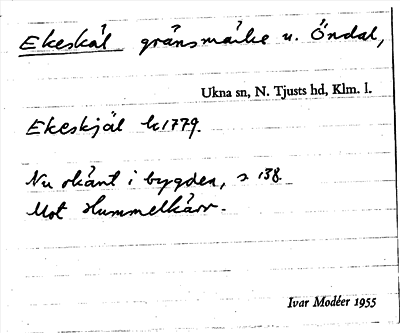 Ekeskál gränsmärke u. Öndal,
Ukna sn, N. Tjusts hd, Klm. l.
Ekeskjäl k 1779.
Nu okänt i bygden, s 138
Mot Hummelkärr.
Ivar Modéer 1955